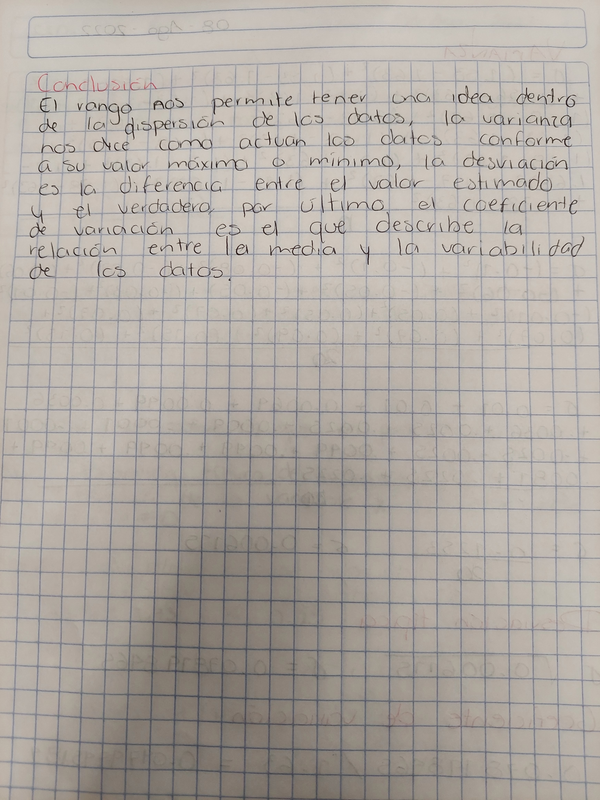 Conclusión
El rango nos permite tener una idea dentro
de la dispersión de los datos, la varianza
nos dice como actuan los datos conforme
a su valor máximo o mínimo, la desviación
es la diferencia entre el valor estimado
y el verdadero, por último el coeficiente
de variación es el que describe la
relación entre la media y la variabilidad
de los datos.